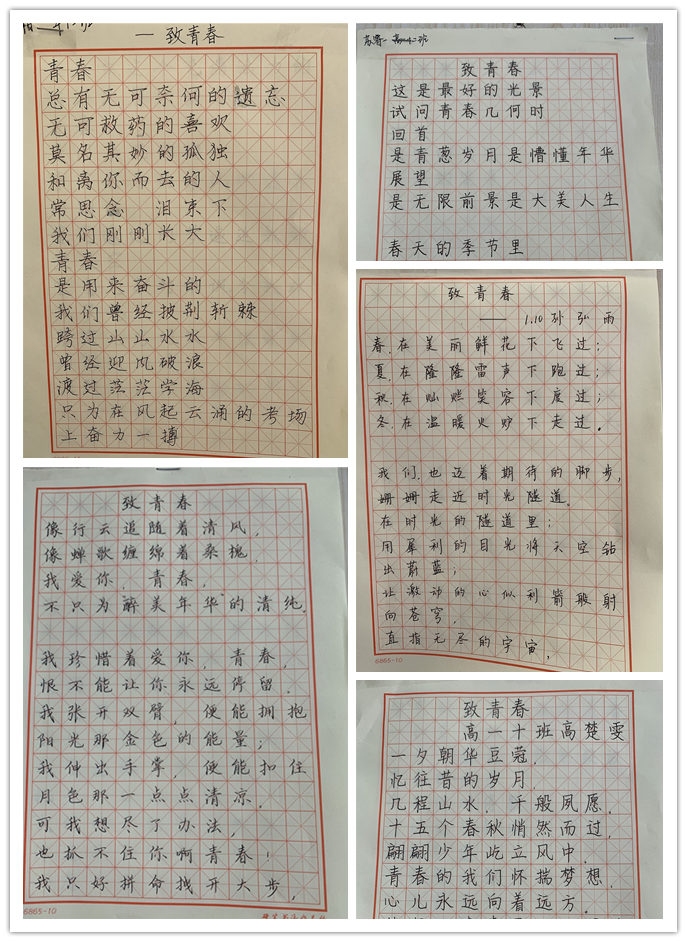 一 致青春
青春
总有无可奈何的遗忘
无可救药的喜欢
莫名其妙的孤独
和离你而去的人
常思念 泪束下
我们刚刚长大
青春
是用来奋斗的
我们曾经披荆斩棘
跨过山山水水
曾经迎风破浪
渡过茫茫学海
只为在风起云涌的考场
上奋力一搏
致青春
像行云追随着清风，
像蝉歌缠绵着桑槐，
我爱你 青春，
不只为醉美年华的清纯.
我珍惜着爱你，青春，
恨不能让你永远停留.
我张开双臂，便能拥抱
阳光那金色的能量；
我伸出手掌，便能扣住
月色那一点点清凉.
可我想尽了办法，
也抓不住你啊青春！
我只好拼命找开大步，
6865-10
致青春
这是最好的光景
试问青春几何时
回首
是青葱岁月是懵懂年华
展望
是无限前景是大美人生
春天的季节里
致青春
—— 1.10 孙弘雨
春.在美丽鲜花下飞过；
夏.在隆隆雷声下跑过；
秋.在灿烂笑容下度过；
冬.在温暖火炉下走过.
我们.也迈着期待的脚步，
姗姗走近时光隧道。
在时光的隧道里；
用犀利的目光将天空钻
出蔚蓝；
让激动的心似利箭般射
向苍穹，
直指无尽的宇宙，
6865-10
致青春
高一十班高楚雯
一夕朝华豆蔻.
忆往昔的岁月
几程山水.千般夙愿.
十五个春秋悄然而过，
翩翩少年屹立风中.
青春的我们怀揣梦想.
心儿永远向着远方.